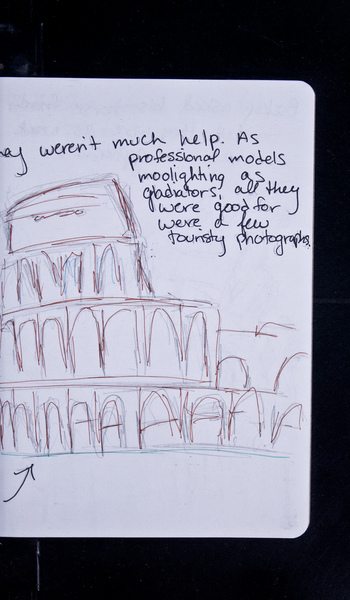 hey weren't much help. As
professional models
moolighting as
gladiators, all they
were good for
were a few
touristy photographs.